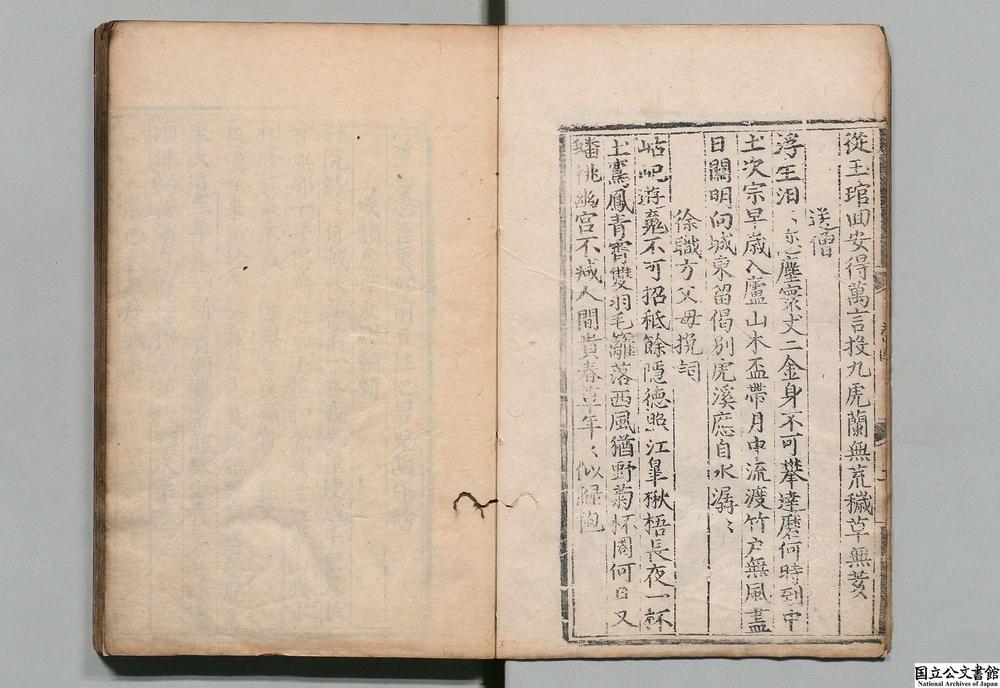 從玉琯回安得萬言投九虎蘭無荒穢草無萎
送僧
浮生汨〻塵寰丈二金身不可攀達磨何時到中
土次宗早歲入廬山木盃帶月中流渡竹戶無風盡
日關明向城東留偈別虎溪應自水潺〻
徐職方父母挽詞
岵屺遊䰟不可招秪餘隱德照江皐楸梧長夜一杯
土鸞鳳青霄雙羽毛籬落西風猶野菊杯圈何日又
蟠桃幽宮不減人間貴春草年〻似綠袍
国立公文書館
National Archives of Japan